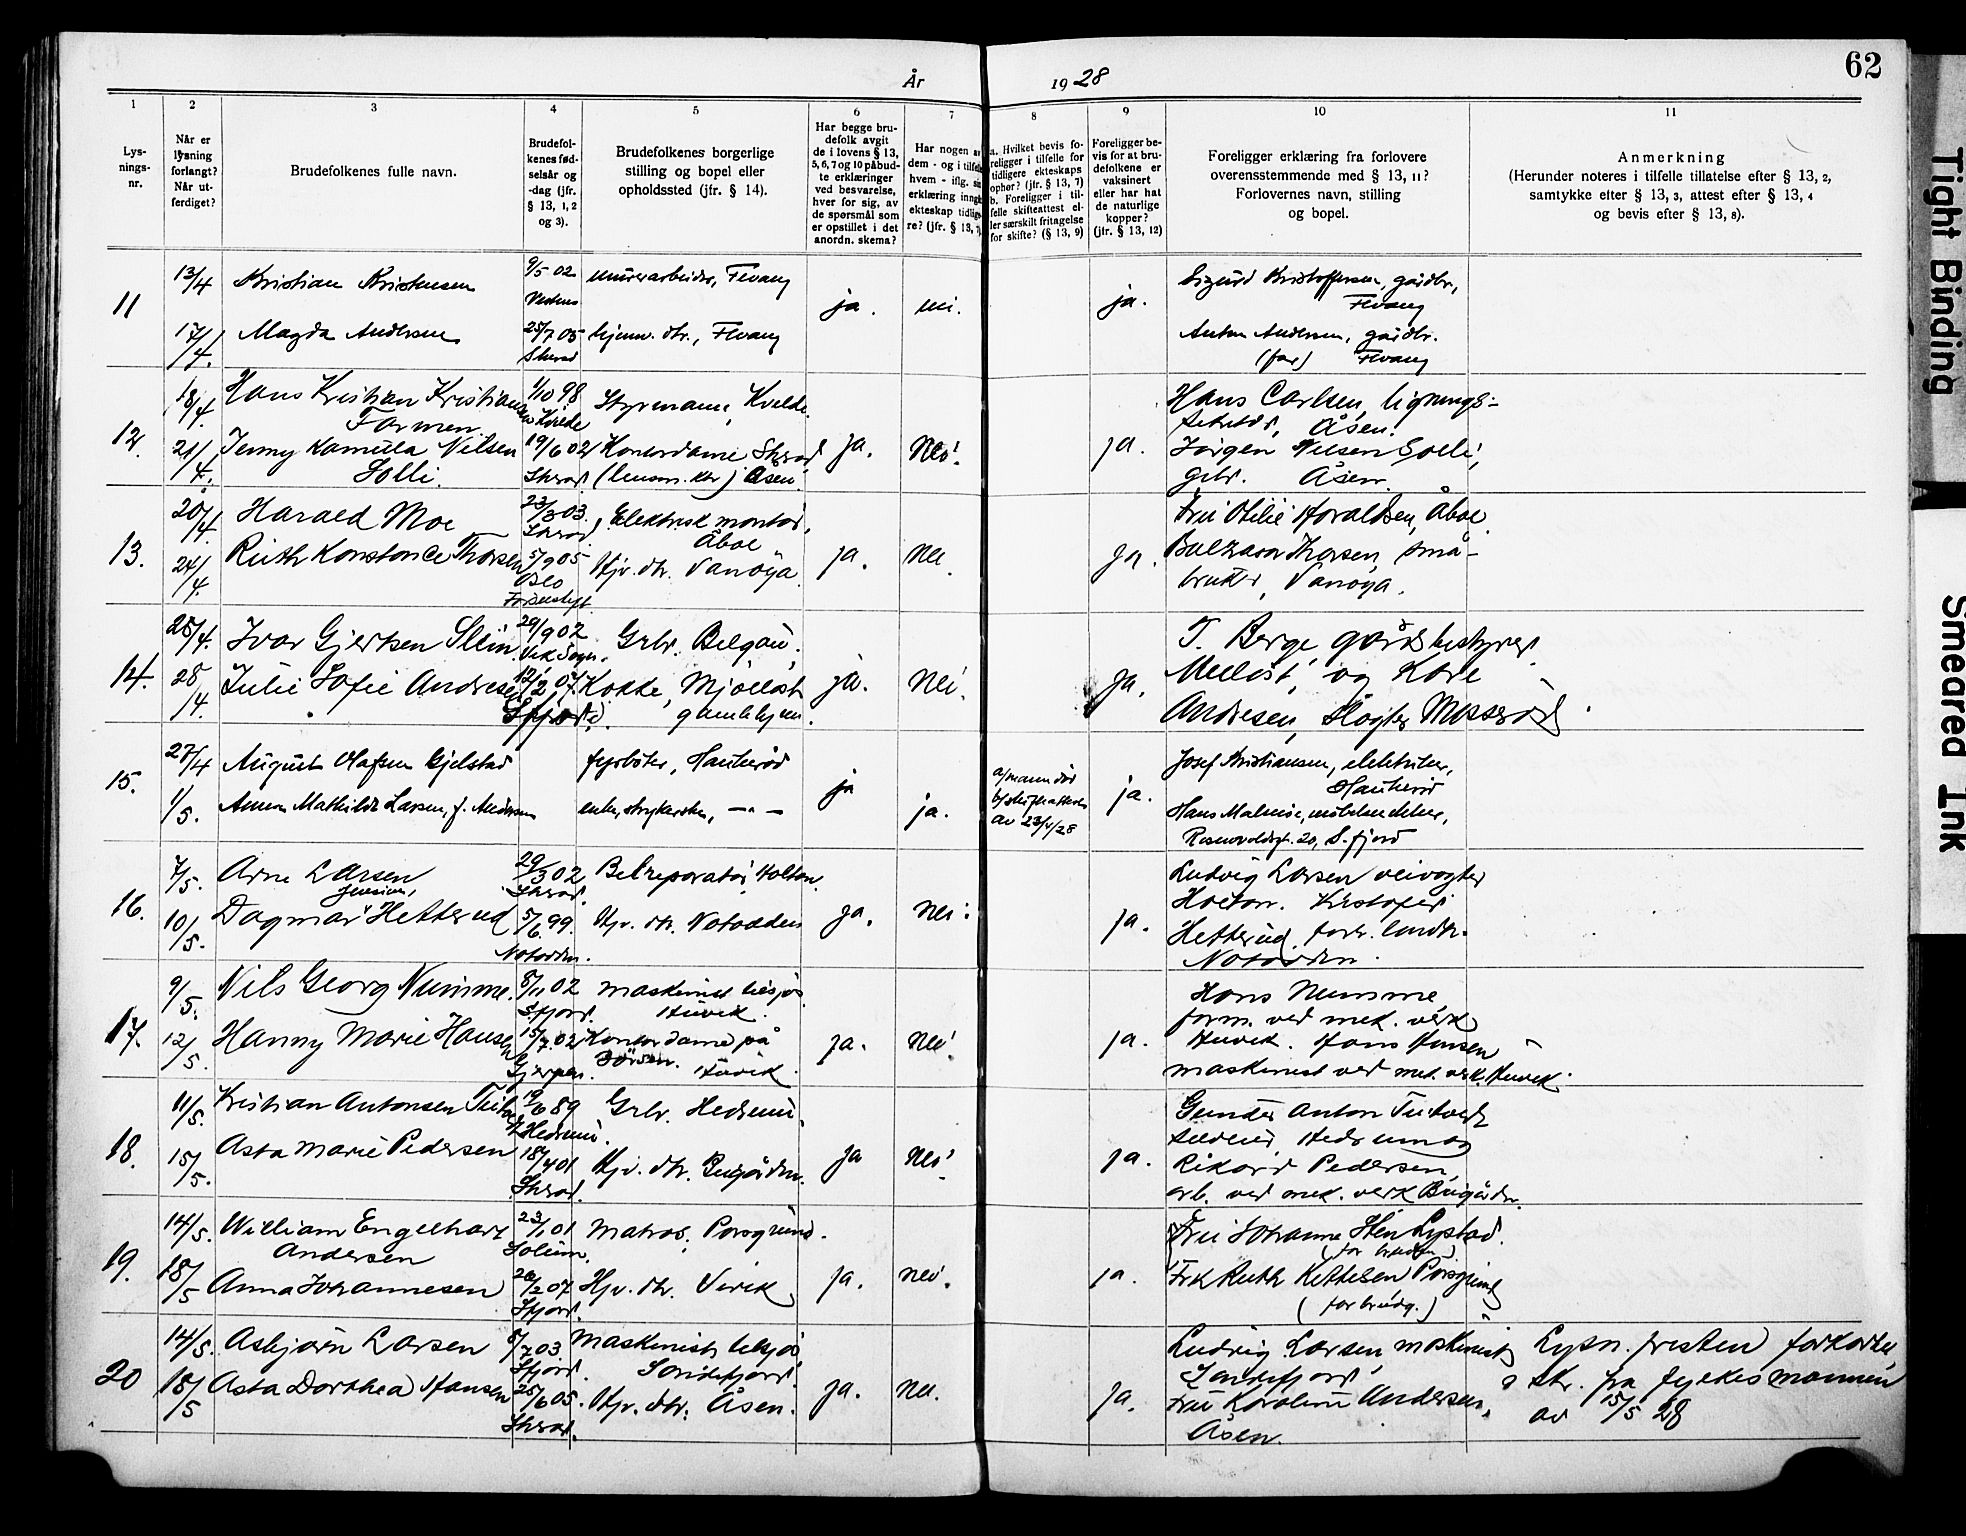 År 1928
62
1 2 3 4 5 6 7 8 9 10 11
Lys-
nings-
nr.
Når er
lysning
forlangt?
Når ut-
ferdiget?
Brudefolkenes fulle navn.
Brudefol-
kenes fød-
selsår og
-dag (jfr.
§ 13, 1,2
og 3).
Brudefolkenes borgerlige
stilling og bopel eller
opholdssted (jfr. § 14).
Har begge bru-
defolk avgit
de i lovens § 13,
5,6,7 og 10 påbud-
te erklæringer
ved besvarelse,
hver for sig, av
de spørsmål som
er opstillet i det
anordn. skema?
Har nogen a
dem - og i tilfelle
hvem - iflg. si
erklæring inng
ekteskap tidlig
re? (jfr. § 13, 7
a. Hvilket bevis fo-
religger i tilfelle for
tidligere ekteskaps
ophør? (jfr. § 13, 7)
b. Foreligger i til-
felle skifteattest el-
ler særskilt fritagelse
for skifte? (§ 13, 9)
Foreligger be-
vis for at bru-
defolkene er
vaksinert
eller har hat
de naturlige
kopper?
(jfr. § 13, 12)
Foreligger erklæring fra forlovere
overensstemmende med § 13, 11?
Forlovernes navn, stilling
og bopel.
Anmerkning
(Herunder noteres i tilfelle tillatelse efter § 13, 2,
samtykke efter § 13, 3, attest efter § 13, 4
og bevis efter § 13, 8).
11
13/4 Kristian Kristensen 9/5 02 murerarbeider, Fevang ja. nei. ja. Sigurd Kristoffersen, gårdbr.,
Fevang
17/4. Magda Andersen 25/7 05 hjemv. dtr., Fevang Anton Andersen, gårdbr.
Skerad (far) Fevang
12.
18/4. Hans Kristian Kristiansen 1/10 98 Styrmann, Kvelde. Hans Carlsen, lignings-
Farmen Kvelde Åsen.
21/4. Jenny Kamilla Nilsen 19/6 02 Kontordame Skerad ja. Nei. ja. Jørgen Nilsen Solli,
Solli. Skerad (lensm. ktr) Åsen. gbr. Åsen.
13.
20/4. Harald Moe 23/3 03. Elektrisk montør, Fru Otilie Haraldsen, Åbol
Skerad Åbol
24/4. Ruth Konstance Thorsen 5/9 05 Hjv. dtr. Vanøya. ja. Nei ja. Balzar Thorsen, små-
Oslo bruker, Vanøya.
14.
25/4. Ivar Gjertsen 29/9 02 Grbr. T. Berge gårdsbestyrer
Vik Sogn.
28/4. Julie Sofie Andresen 12/2 07. Kokke, Mjøllost ja. Nei. ja. og Kåre
Sfjord. gamlehjem. Andresen, slagter
15.
27/4 August Olafsen Gjelstad fyrbøter, Haukerød ja a/ mann død ja. Josef Kristiansen, elektriker,
b/ skifteattest Haukerød
1/5. Anna Mathilde Larsen, f. Andersen enke, strykerske, —"— ja. av 23/4/28 Hans Malmøe, møbelsnekker,
20, S. fjord
16.
7/5. Arne Larsen 29/3 02 Bilreparatør Holtan. Ludvig Larsen veivogter
Jensine, Skerad.
10/5. Dagmar Hetterud 5/6 99. Hjv. dtr. Notodden ja. Nei. ja. Holtan. Kristofer
Notodden. Hetterud,
Notodden.
17.
9/5. Nils Georg Numme. 8/11 02 Maskinist tilsjøs Hans Numme
S.fjord. Huvik. form. ved mek. verk
12/5. Hanny Marie Hansen 15/7.02 Kontordame på ja. Nei. ja. Huvik. Hans Hansen
Gjerpen. Børsen. Huvik maskinist ved mek. verk. Huvik.
18.
11/5. Kristian Antonsen 19/6 89 Grbr. Hedrum. Gunder Anton
Hedrum. Hedrum og
15/5. Asta Marie Pedersen 18/4 01 Hjv. dtr. Bugården. ja Nei. ja. Rikard Pedersen
Skerad. arb. ved mek. verk Bugården
19.
14/5. William Engelhart 23/1 01 Matros, Porsgrund. Fru Johanne Lystad.
Andersen Solum. (for bruden)
18/5 Anna Johannesen 20/2 07 Hjv. dtr. Virik ja. nei. ja. Frk Ruth Kittelsen Porsgrund
Sfjord. (for brudg.)
20
14/5. Asbjørn Larsen 5/7 03 Maskinist tilsjøs Ludvig Larsen, maskinist Lysn. fristen forkortet
Sfjord. Sandefjord. Sandefjord. skr. fra fylkesmannen
18/5 Asta Dorthea Hansen 25/6 05. Hjv. dtr. Åsen. ja. Nei. ja. Fru Karoline Andersen, av 15/5 28
Skerad. Åsen.
Tight Binding
Smeared Ink